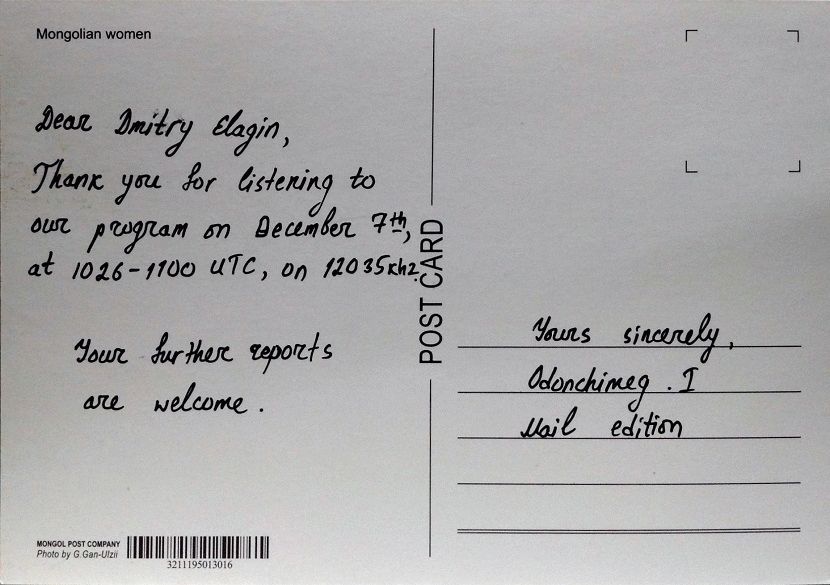 Mongolian women
Dear Dmitry Elagin,
Thank you for listening to
our program on December 7th,
at 1026-1100 UTC, on 12035khz.
Your further reports
are welcome.
POST CARD
Yours sincerely,
Odonchimeg. I
Mail edition
MONGOL POST COMPANY
Photo by G.Gan-Ulzii
3211195013016